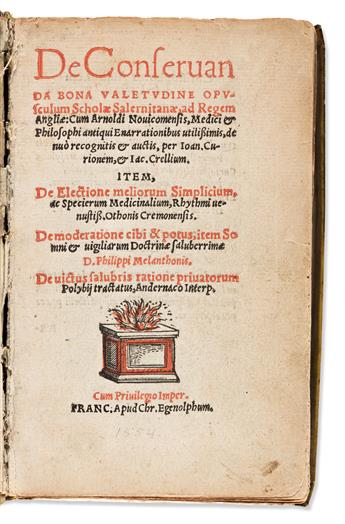 De Conseruan
DA BONA VALETVDINE OPV-
sculum Scholæ Salernitanæ, ad Regem
Angliæ: Cum Arnoldi Nouicomensis, Medici &
Philosophi antiqui Enarrationibus utilißimis, de
nuò recognitis & auctis, per Ioan. Cu-
rionem, & Iac. Crellium.
ITEM,
De Electione meliorum Simplicium,
ac Specierum Medicinalium, Rhythmi ue-
nustiß. Othonis Cremonensis.
De moderatione cibi & potus, item So
mni & uigiliarum Doctrinæ saluberrimæ
D. Philippi Melanthonis.
De uictus salubris ratione priuatorum
Polybij tractatus, Andernaco Interp.
Cum Priuilegio Imper.
FRANC. Apud Chr. Egenolphum.
1554